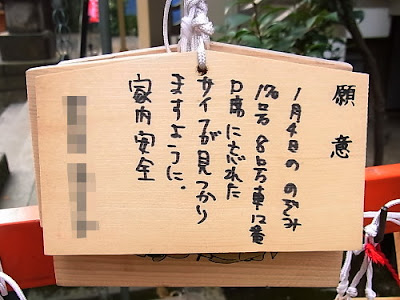 願意
1月4日の のぞみ
170号 8号車12番
D席に忘れた
サイフが見つかり
ますように。
家内安全